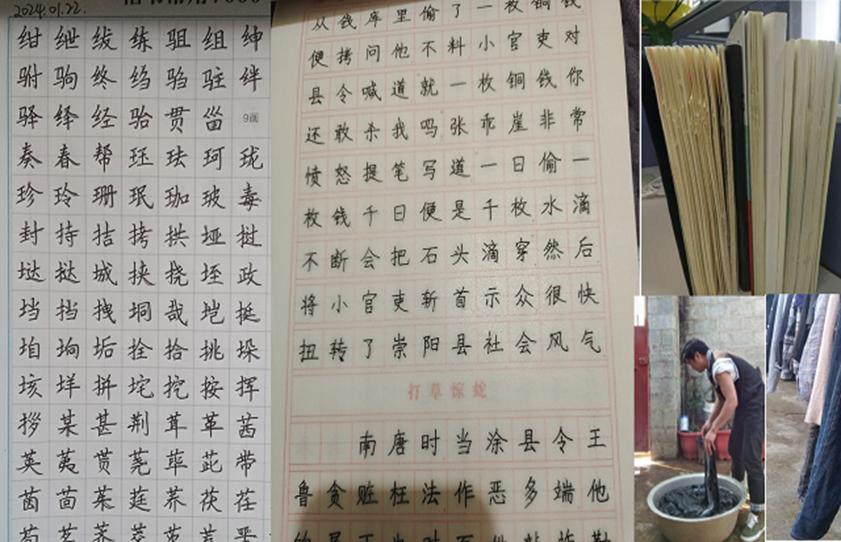 2024.01.22.
绀 绁 绂 练 驵 组 绅
驸 驹 终 绉 驺 驻 绊
驿 绎 经 骀 贯 甾 9画
奏 春 帮 珏 珐 珂 珑
珍 玲 珊 珉 珈 玻 毒
封 持 拮 拷 拱 垭 挝
垯 挞 城 挟 挠 垤 政
垱 挡 拽 垌 哉 垲 挺
垍 垧 垢 拴 拾 挑 垛
垓 垟 拼 垞 挖 按 挥
拶 某 甚 荆 茸 革 茜
英 荑 贳 荛 荜 茈 带
茵 茴 茱 莛 荞 茯 荏
从钱库里偷了一枚铜钱
便拷问他不料小官吏对
县令喊道就一枚铜钱你
还敢杀我吗张乖崖非常
愤怒提笔写道一日偷一
枚钱千日便是千枚水滴
不断会把石头滴穿然后
将小官吏斩首示众很快
扭转了崇阳县社会风气
打草惊蛇
南唐时当涂县令王
鲁贪赃枉法作恶多端他